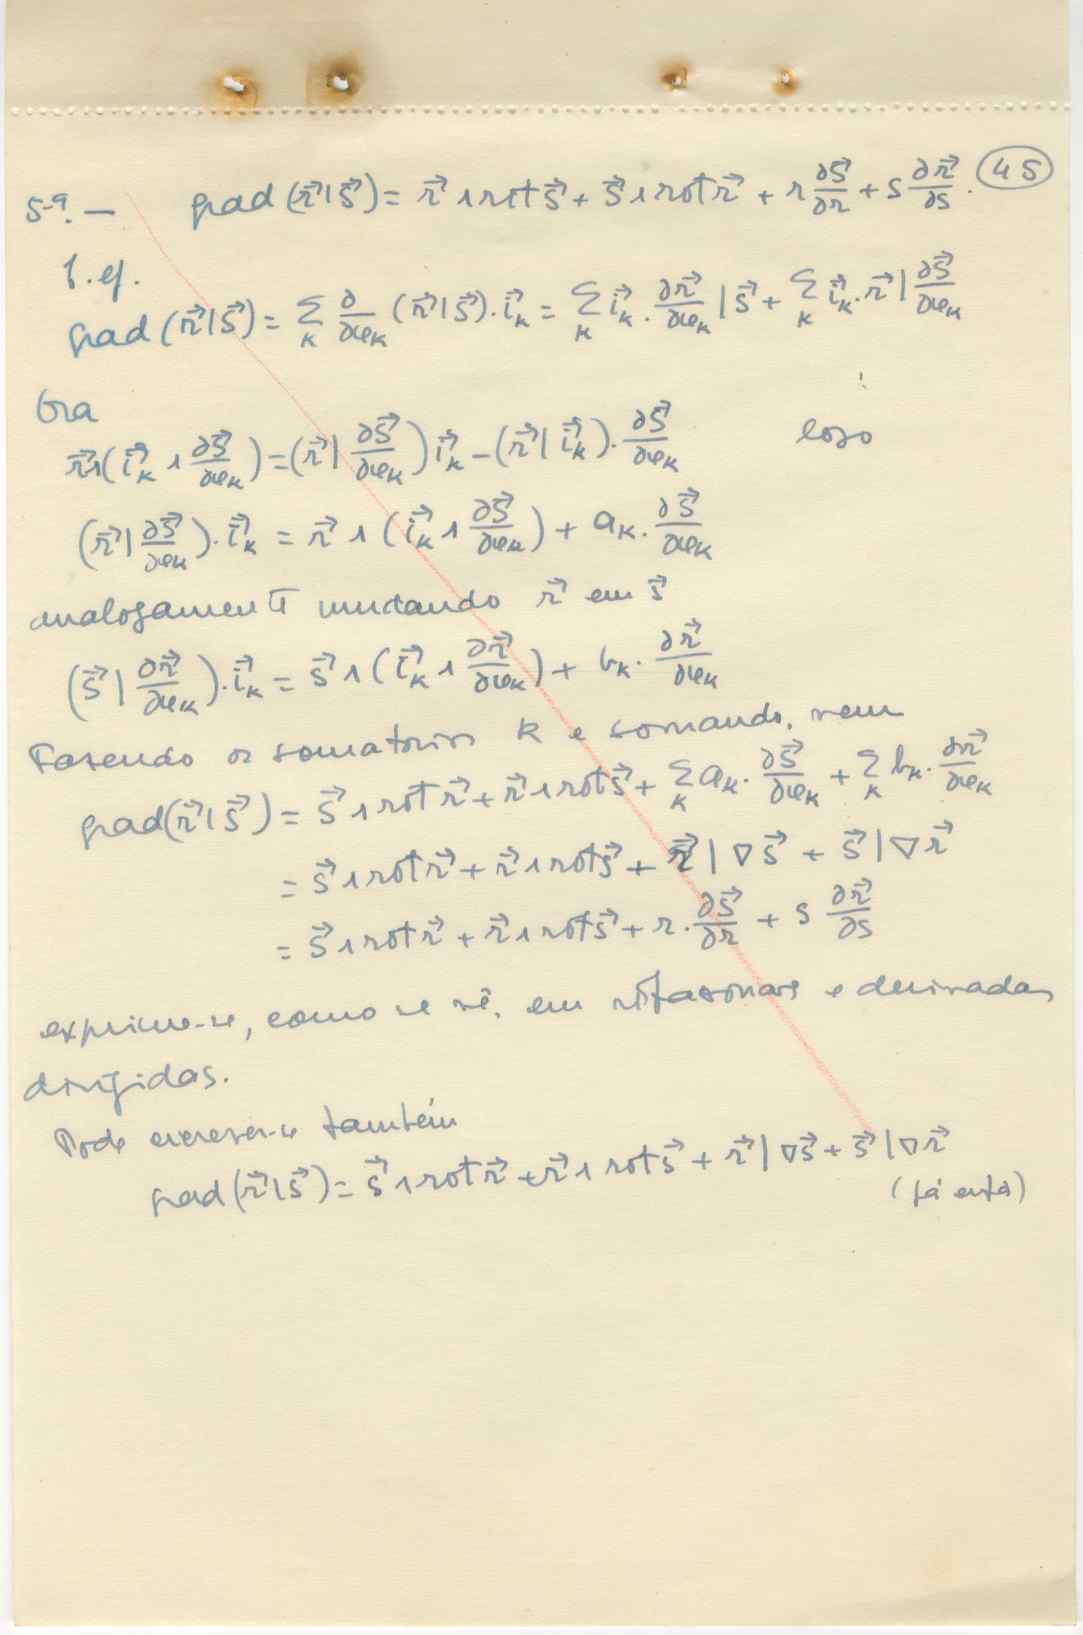 5-ª. — grad (r⃗|s⃗) = r⃗ ∧ rot s⃗ + s⃗ ∧ rot r⃗ + r ∂s⃗/∂r + s ∂r⃗/∂s. (45)
f. ef.
grad (r⃗|s⃗) = Σ_k ∂/∂x_k (r⃗|s⃗) · i⃗_k = Σ_k i⃗_k · ∂r⃗/∂x_k | s⃗ + Σ_k i⃗_k · r⃗ | ∂s⃗/∂x_k
Ora
r⃗ ∧ (i⃗_k ∧ ∂s⃗/∂x_k) = (r⃗ | ∂s⃗/∂x_k) i⃗_k − (r⃗ | i⃗_k) · ∂s⃗/∂x_k logo
(r⃗ | ∂s⃗/∂x_k) · i⃗_k = r⃗ ∧ (i⃗_k ∧ ∂s⃗/∂x_k) + a_k · ∂s⃗/∂x_k
analogamente mudando r⃗ em s⃗
(s⃗ | ∂r⃗/∂x_k) · i⃗_k = s⃗ ∧ (i⃗_k ∧ ∂r⃗/∂x_k) + b_k · ∂r⃗/∂x_k
Fazendo os somatorios k e somando, vem
grad(r⃗|s⃗) = s⃗ ∧ rot r⃗ + r⃗ ∧ rot s⃗ + Σ_k a_k · ∂s⃗/∂x_k + Σ_k b_k · ∂r⃗/∂x_k
= s⃗ ∧ rot r⃗ + r⃗ ∧ rot s⃗ + r⃗ | ∇ s⃗ + s⃗ | ∇ r⃗
= s⃗ ∧ rot r⃗ + r⃗ ∧ rot s⃗ + r · ∂s⃗/∂r + s ∂r⃗/∂s
exprime-se, como se vê, em rotacionais e derivadas
dirigidas.
Pode escrever-se também
grad (r⃗|s⃗) = s⃗ ∧ rot r⃗ + r⃗ ∧ rot s⃗ + r⃗ | ∇s⃗ + s⃗ | ∇r⃗
(já está)